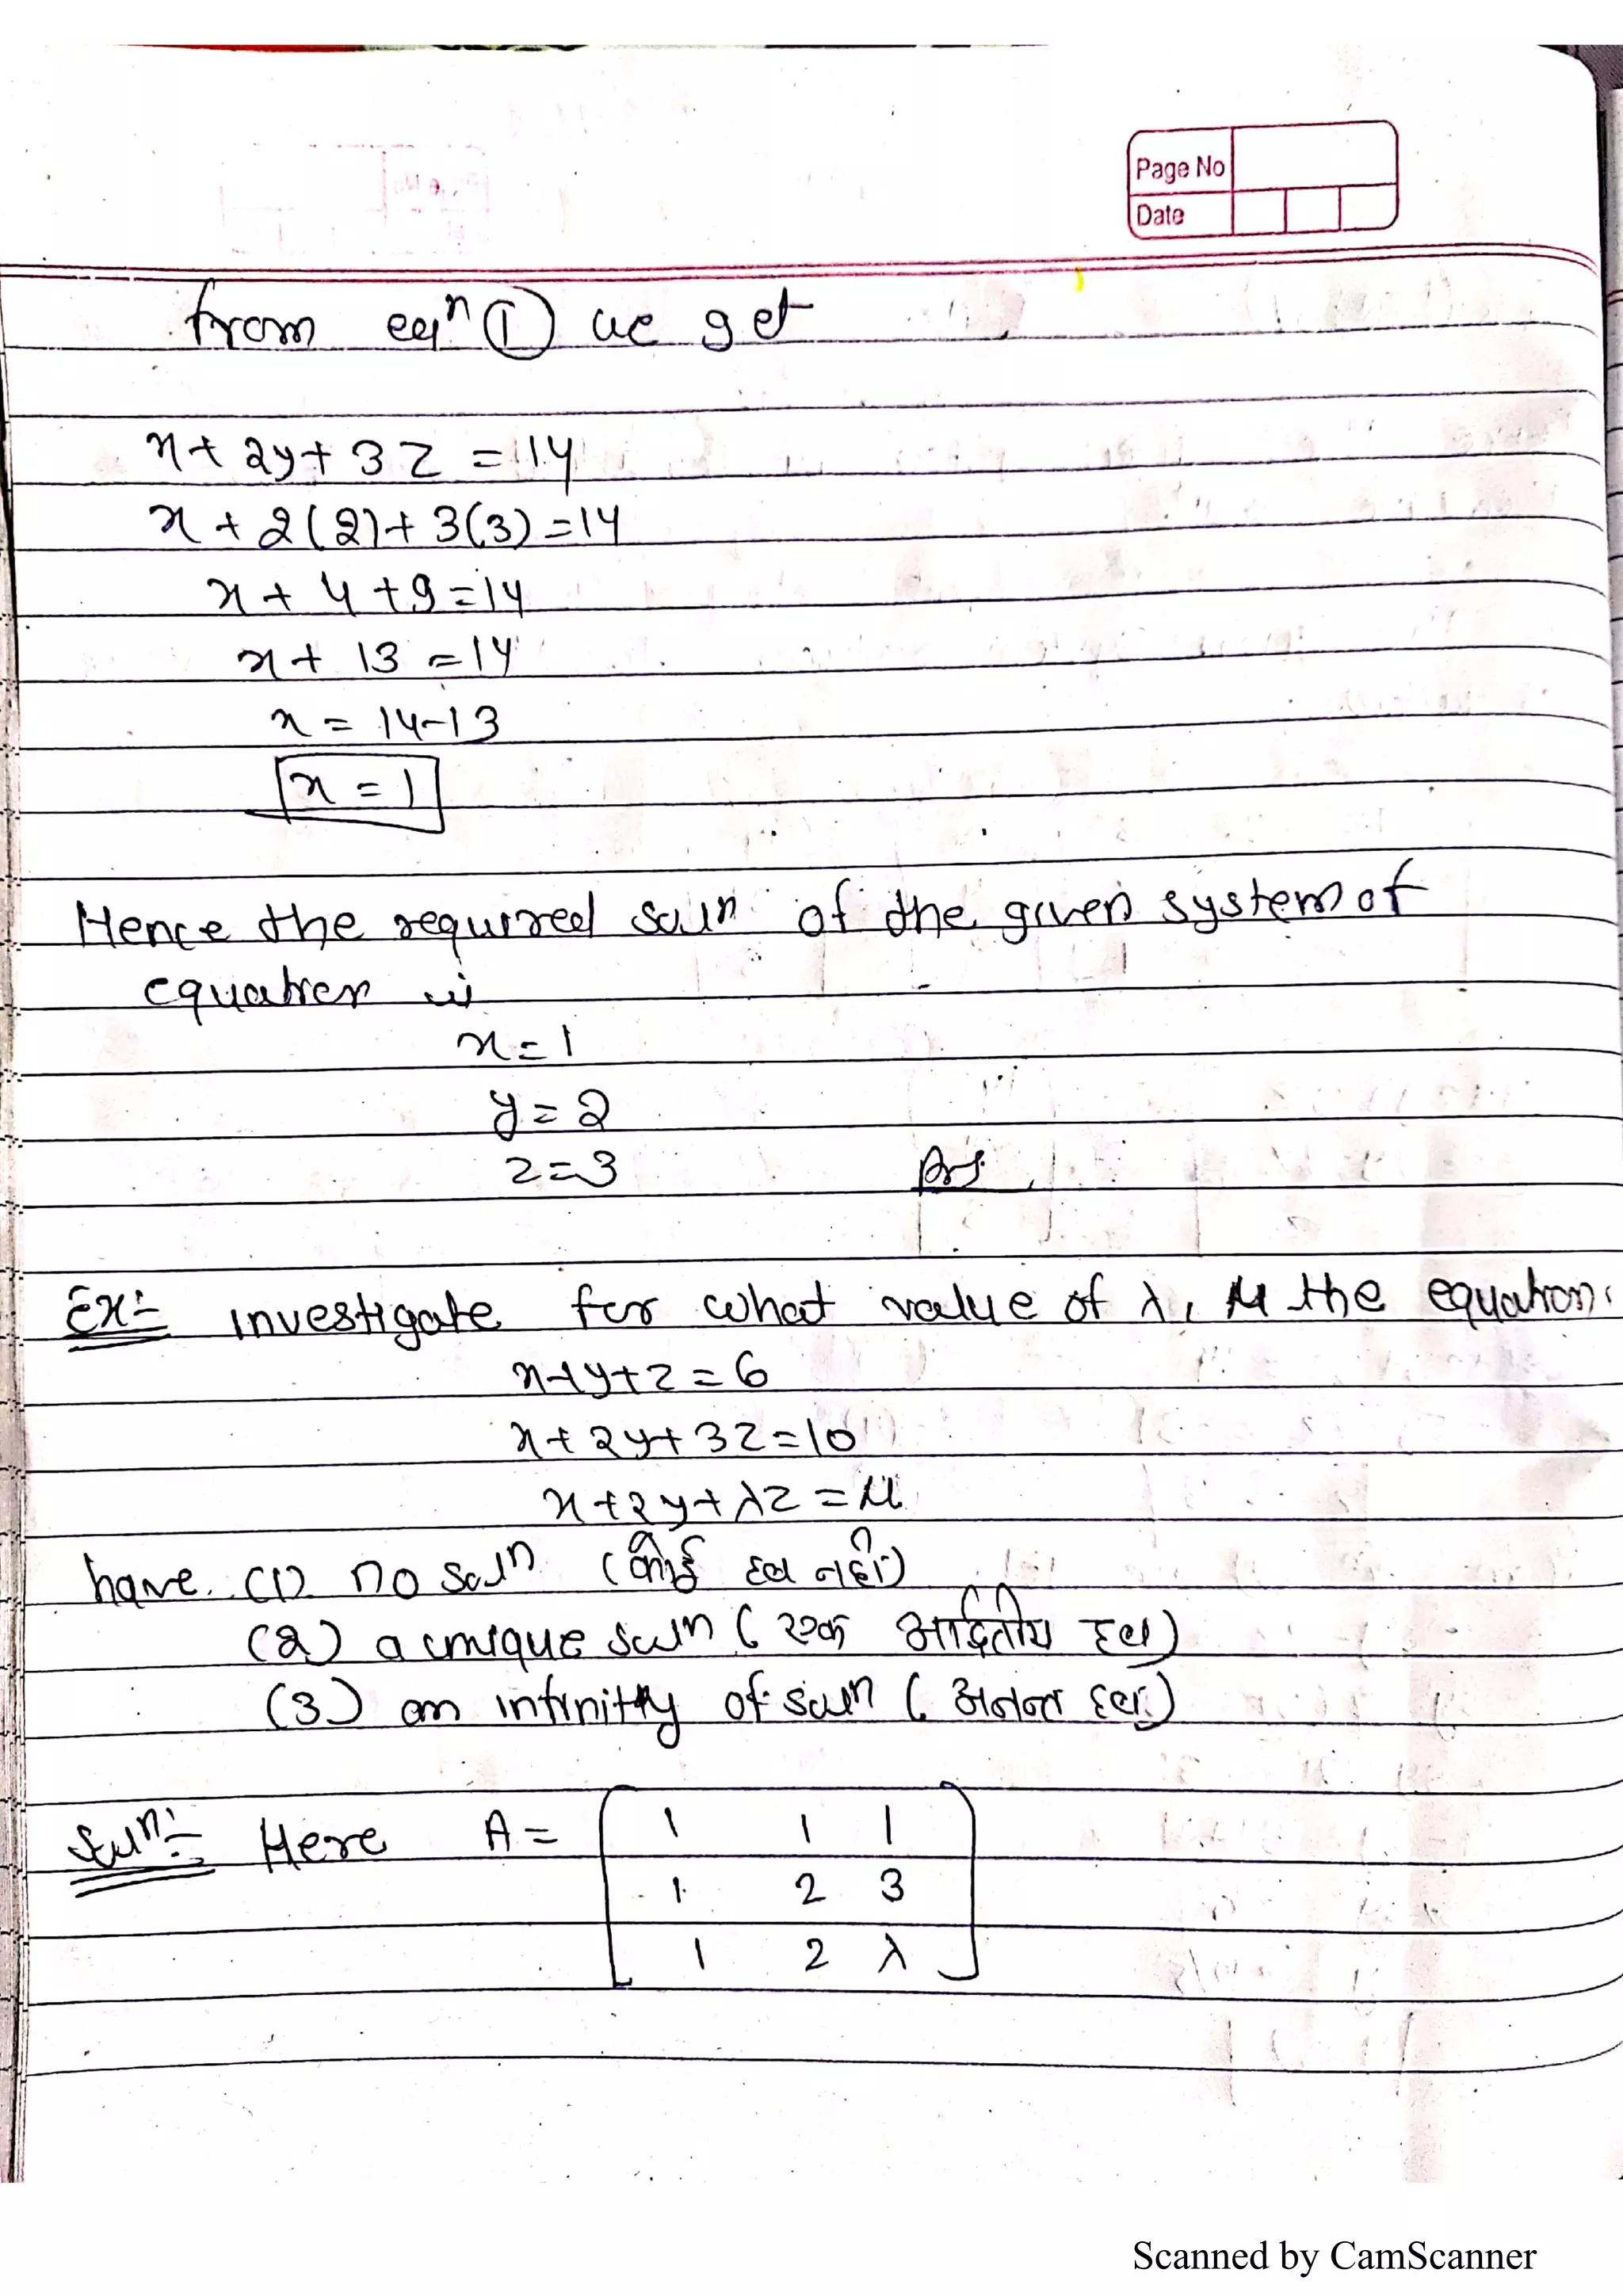 Page No
Date
from eqⁿ ① we get
x + 2y + 3z = 14
x + 2(2) + 3(3) = 14
x + 4 + 9 = 14
x + 13 = 14
x = 14 - 13
x = 1
Hence the required solⁿ of the given system of
equation is
x = 1
y = 2
z = 3 Ans
Ex:- investigate for what value of λ, μ the equation
x + y + z = 6
x + 2y + 3z = 10
x + 2y + λz = μ
have (1) no solⁿ (कोई हल नहीं)
(2) a unique solⁿ (एक अद्वितीय हल)
(3) an infinity of solⁿ (अनन्त हल)
Solⁿ:- Here A = [ 1 1 1
1 2 3
1 2 λ ]
Scanned by CamScanner